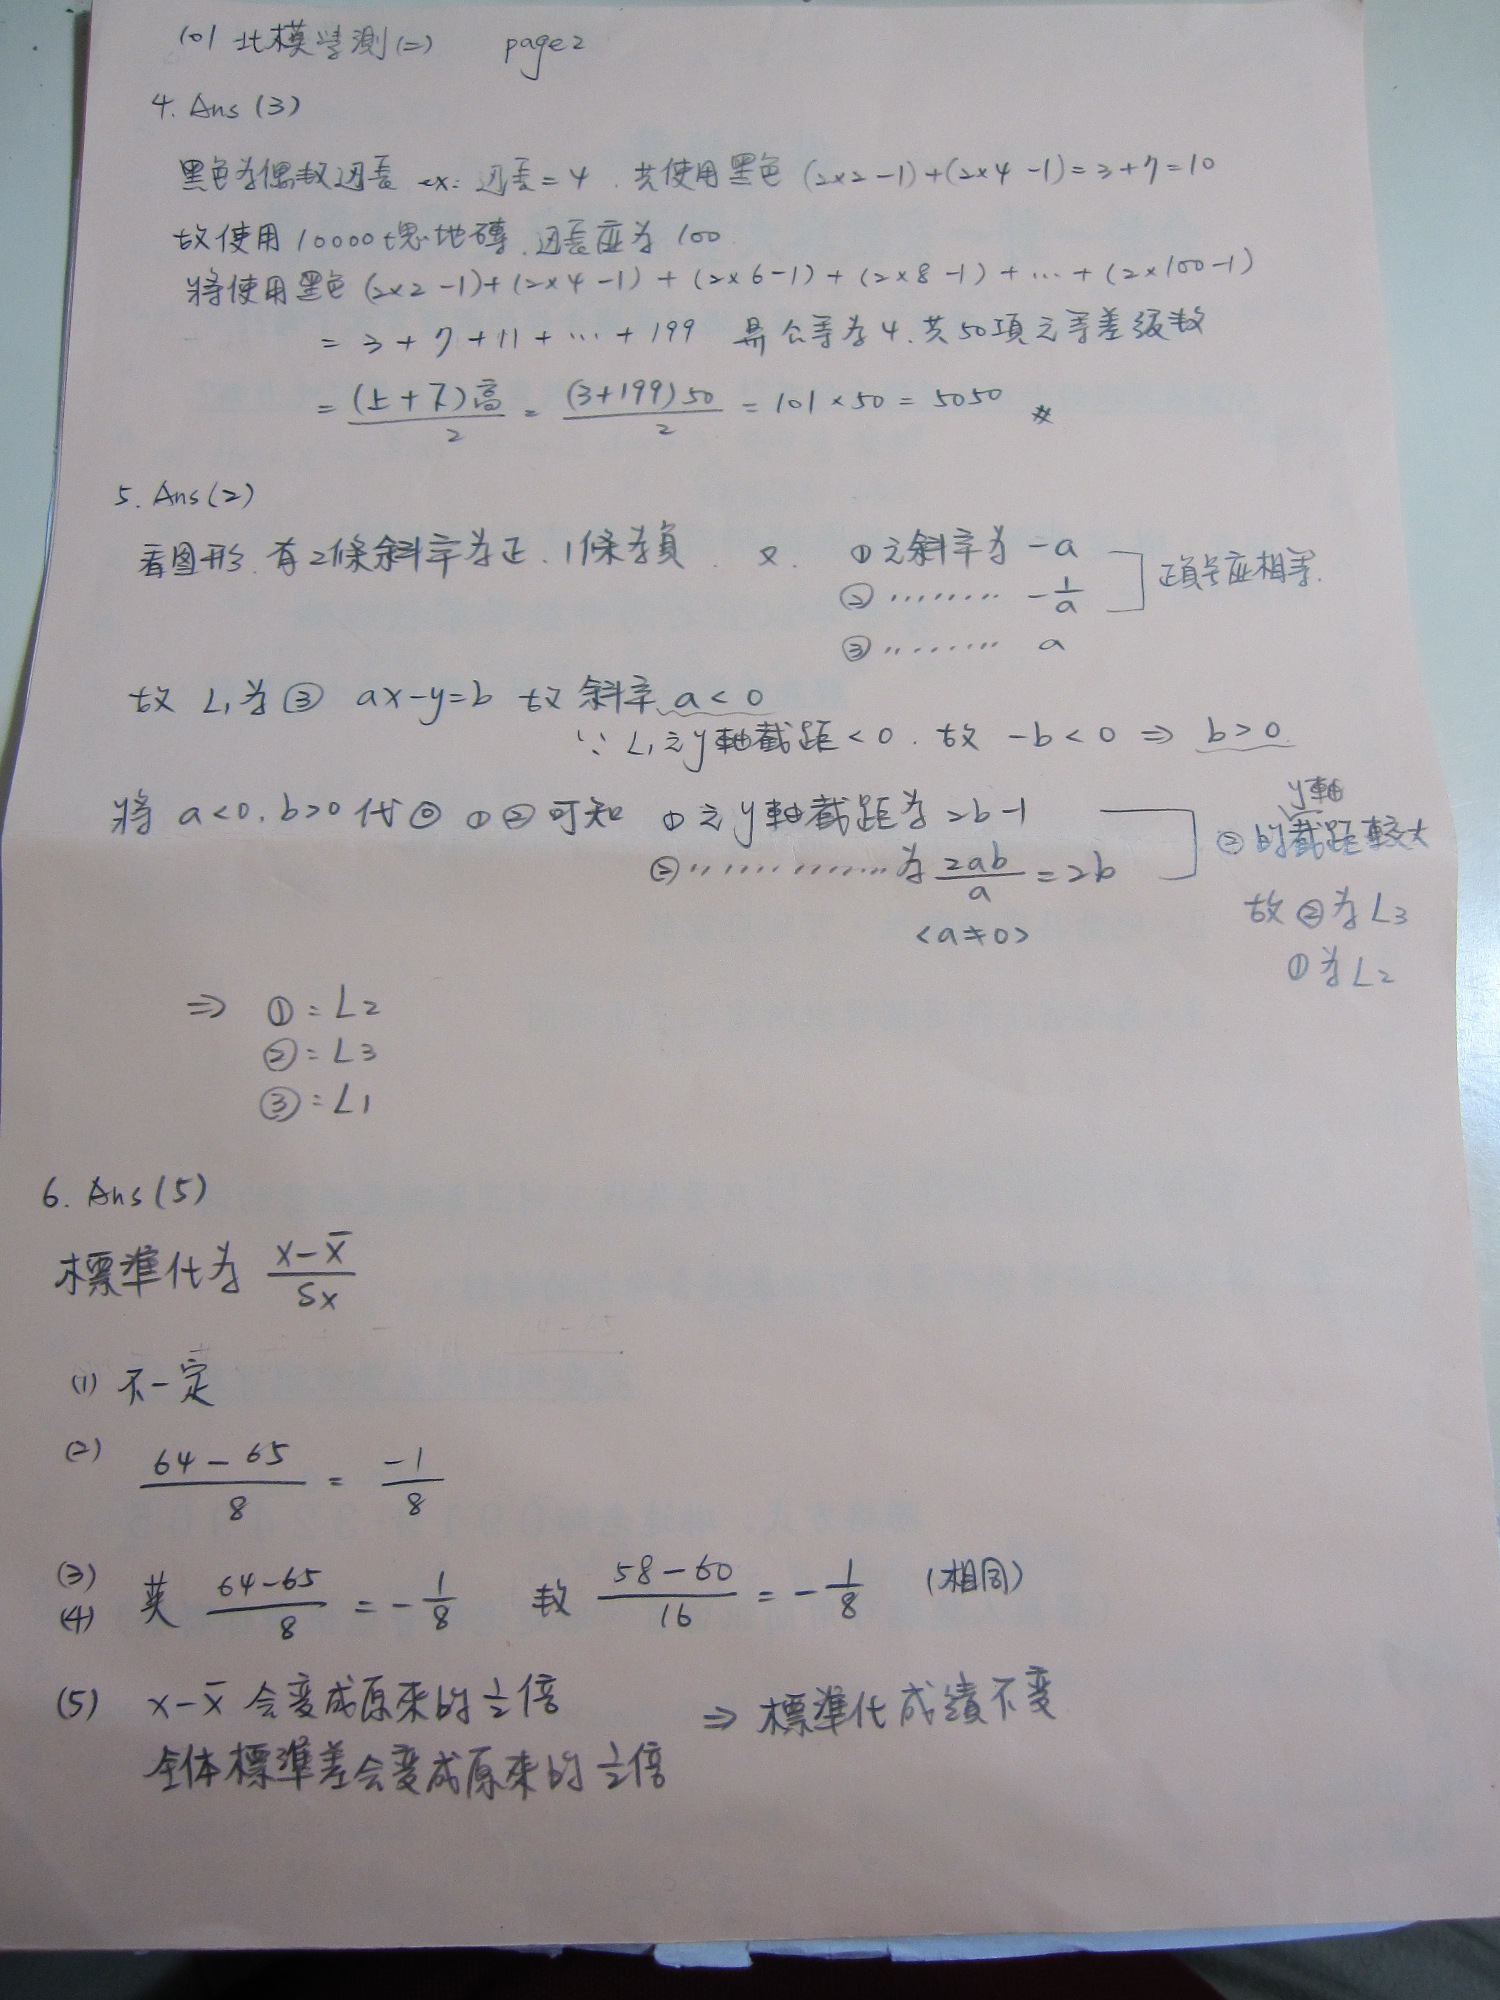 101 北模學測(二) page 2
4. Ans (3)
黑色為偶數边長 ex: 边長=4. 共使用黑色 (2×2-1)+(2×4-1)=3+7=10
故使用10000塊地磚.边長应為 100
將使用黑色 (2×2-1)+(2×4-1)+(2×6-1)+(2×8-1)+…+(2×100-1)
= 3+7+11+…+199 公差為4.共50項之等差級数
= (上+下)高/2 = (3+199)50/2 = 101×50 = 5050 #
5. Ans(2)
看图形.有2條斜率為正.1條為負. 又. ①之斜率為 -a
② ……… -1/a 正負号应相等.
③ ……… a
故 L1為③ ax-y=b 故斜率 a<0
∵ L1之y軸截距<0. 故 -b<0 ⇒ b>0.
將 a<0. b>0 代回 ①②可知 ①之y軸截距為 2b-1 ②的y軸截距較大
②…………… 為 2ab/a = 2b
<a≠0>
故②為L3
①為L2
⇒ ①=L2
②=L3
③=L1
6. Ans(5)
標準化為 (x-x̄)/Sx
(1) 不一定
(2) (64-65)/8 = -1/8
(3)
(4) 英 (64-65)/8 = -1/8 数 (58-60)/16 = -1/8 (相同)
(5) x-x̄ 会变成原來的 1/2 倍 ⇒ 標準化成績不变
全体標準差会变成原來的 1/2 倍